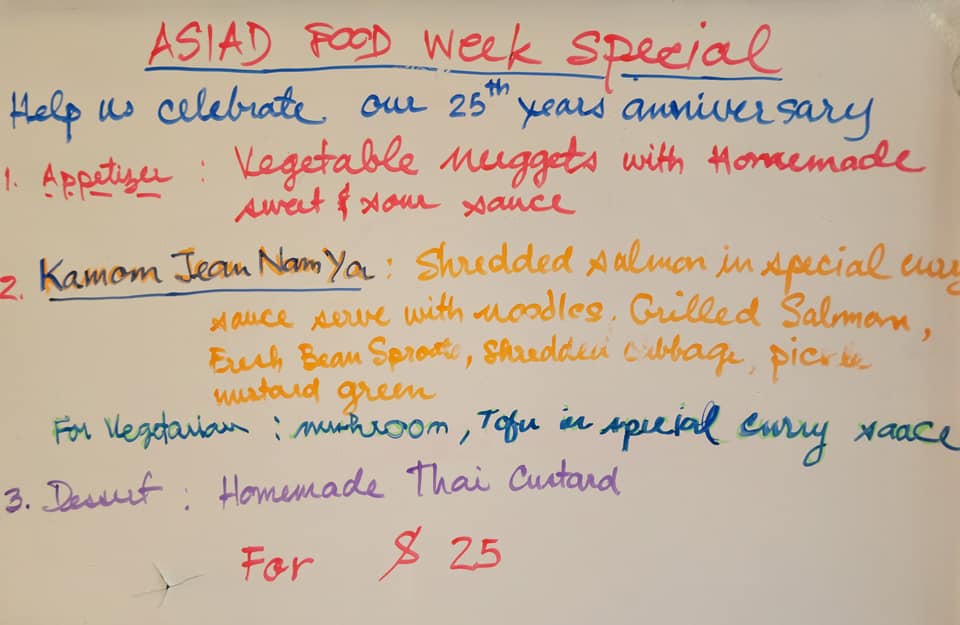 ASIAD FOOD Week Special
Help us celebrate our 25th years anniversary
1. Appetizer : Vegetable Nuggets with Homemade
sweet & sour sauce
2. Kamom Jean Nam Ya : Shredded salmon in special curry
sauce serve with noodles. Grilled Salmom,
Fresh Bean Sprouts, shredded cabbage, pickle
mustard green
For Vegetarian : mushroom, Tofu in special curry saace
3. Dessert : Homemade Thai Custard
For $ 25